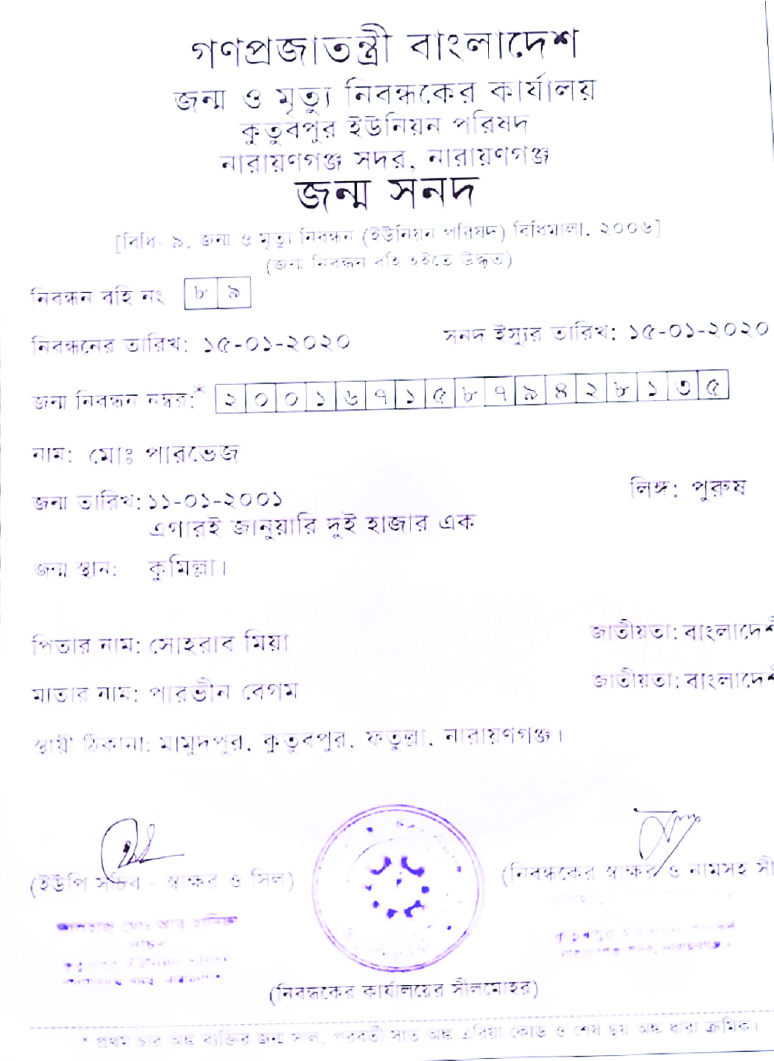 গণপ্রজাতন্ত্রী বাংলাদেশ
জন্ম ও মৃত্যু নিবন্ধকের কার্যালয়
কুতুবপুর ইউনিয়ন পরিষদ
নারায়ণগঞ্জ সদর, নারায়ণগঞ্জ
জন্ম সনদ
[বিধি- ৯, জন্ম ও মৃত্যু নিবন্ধন (ইউনিয়ন পরিষদ) বিধিমালা, ২০০৬]
(জন্ম নিবন্ধন বহি হইতে উদ্ধৃত)
নিবন্ধন বহি নং ৮৯
নিবন্ধনের তারিখ: ১৫-০১-২০২০ সনদ ইস্যুর তারিখ: ১৫-০১-২০২০
জন্ম নিবন্ধন নম্বর:* ২০০১৬৭১৫৮৭৯৪২৮১৩৫
নাম: মোঃ পারভেজ
জন্ম তারিখ: ১১-০১-২০০১ লিঙ্গ: পুরুষ
এগারই জানুয়ারি দুই হাজার এক
জন্ম স্থান: কুমিল্লা।
পিতার নাম: সোহরাব মিয়া জাতীয়তা: বাংলাদেশী
মাতার নাম: পারভীন বেগম জাতীয়তা: বাংলাদেশী
স্থায়ী ঠিকানা: মামুদপুর, কুতুবপুর, ফতুল্লা, নারায়ণগঞ্জ।
(ইউপি সচিব - স্বাক্ষর ও সিল) (নিবন্ধকের স্বাক্ষর ও নামসহ সী
সচিব
(নিবন্ধকের কার্যালয়ের সীলমোহর)
* প্রথম চার অঙ্ক ব্যক্তির জন্ম সাল, পরবর্তী সাত অঙ্ক এরিয়া কোড ও শেষ ছয় অঙ্ক ধারা ক্রমিক।